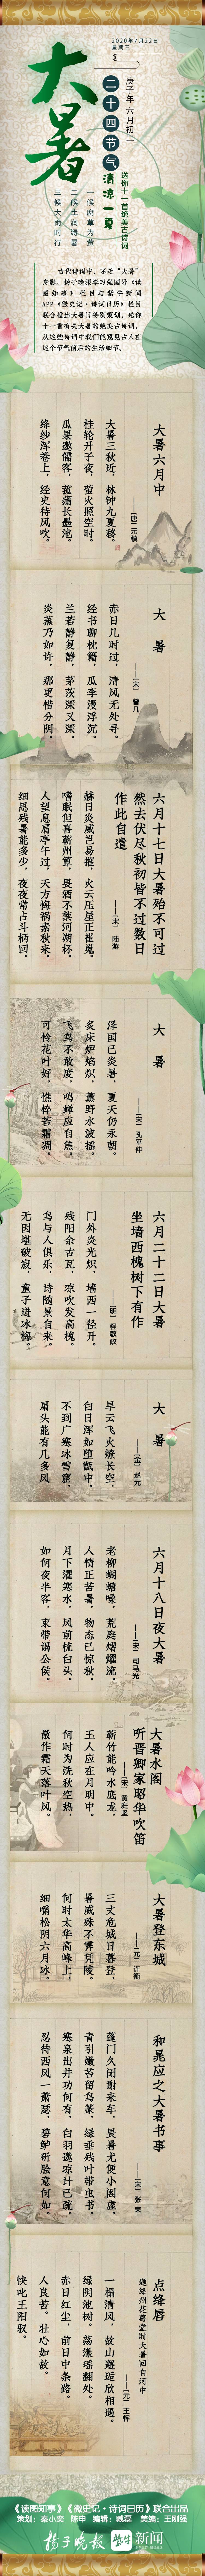 2020年7月22日
星期三
大暑
庚子年 六月初二
二十四节气
清凉一夏
送你十一首绝美古诗词
一候腐草为萤
二候土润溽暑
三候大雨时行
古代诗词中，不乏“大暑”
身影。扬子晚报学习强国号《读
图知事》栏目与紫牛新闻
APP《微史记·诗词日历》栏目
联合推出大暑日特别策划，送你
十一首有关大暑的绝美古诗词，
从这些诗词中我们能窥见古人在
这个节气前后的生活细节。
大暑六月中
——〔唐〕元稹
大暑三秋近，林钟九夏移。
桂轮开子夜，萤火照空时。
瓜果邀儒客，菰蒲长墨池。
绛纱浑卷上，经史待风吹。
大暑
——〔宋〕曾几
赤日几时过，清风无处寻。
经书聊枕籍，瓜李漫浮沉。
兰若静复静，茅茨深又深。
炎蒸乃如许，那更惜分阴。
六月十七日大暑殆不可过
然去伏尽秋初皆不过数日
作此自遣
——〔宋〕陆游
赫日炎威岂易摧，火云压屋正崔嵬。
嗜眠但喜蕲州簟，畏酒不禁河朔杯。
人望息肩亭午过，天方悔祸素秋来。
细思残暑能多少，夜夜常占斗柄回。
大暑
——〔宋〕孔平仲
泽国已炎暑，夏天仍永朝。
炙床炉焰炽，薰野水波摇。
飞鸟不敢度，鸣蝉应自焦。
可怜花叶好，憔悴若霜凋。
六月二十二日大暑
坐墙西槐树下有作
——〔明〕程敏政
门外炎光炽，墙西一径开。
残阳余古瓦，凉吹发高槐。
鸟与人俱乐，诗随景自来。
无因堪破寂，童子进冰梅。
大暑
——〔金〕赵元
旱云飞火燎长空，
白日浑如堕甑中。
不到广寒冰雪窟，
扇头能有几多风
六月十八日夜大暑
——〔宋〕司马光
老柳蜩螗噪，荒庭熠燿流。
人情正苦暑，物态已惊秋。
月下濯寒水，风前梳白头。
如何夜半客，束带谒公侯。
大暑水阁
听晋卿家昭华吹笛
——〔宋〕黄庭坚
蕲竹能吟水底龙，
玉人应在月明中。
何时为洗秋空热，
散作霜天落叶风。
大暑登东城
——〔元〕许衡
三丈危城日暮登，
暑威殊不霁凭陵。
何时太华高峰上，
细嚼松阴六月冰。
和晁应之大暑书事
——〔宋〕张耒
蓬门久闭谢来车，畏暑尤便小阁虚。
青引嫩苔留鸟篆，绿垂残叶带虫书。
寒泉出井功何有，白羽邀凉计已疏。
忍待西风一萧瑟，碧鲈斫脍意何如。
点绛唇
题绛州花萼堂时大暑回自河中
——〔元〕王恽
一榻清风，故山邂逅欣相遇。
绿阴池树。荡漾瑶翻处。
赤日红尘，前日中条路。
人良苦。壮心如故。
快叱王阳驭。
《读图知事》《微史记·诗词日历》联合出品
策划：秦小奕 陈申 编辑：臧磊 美编：王刚强
扬子晚报 紫牛新闻